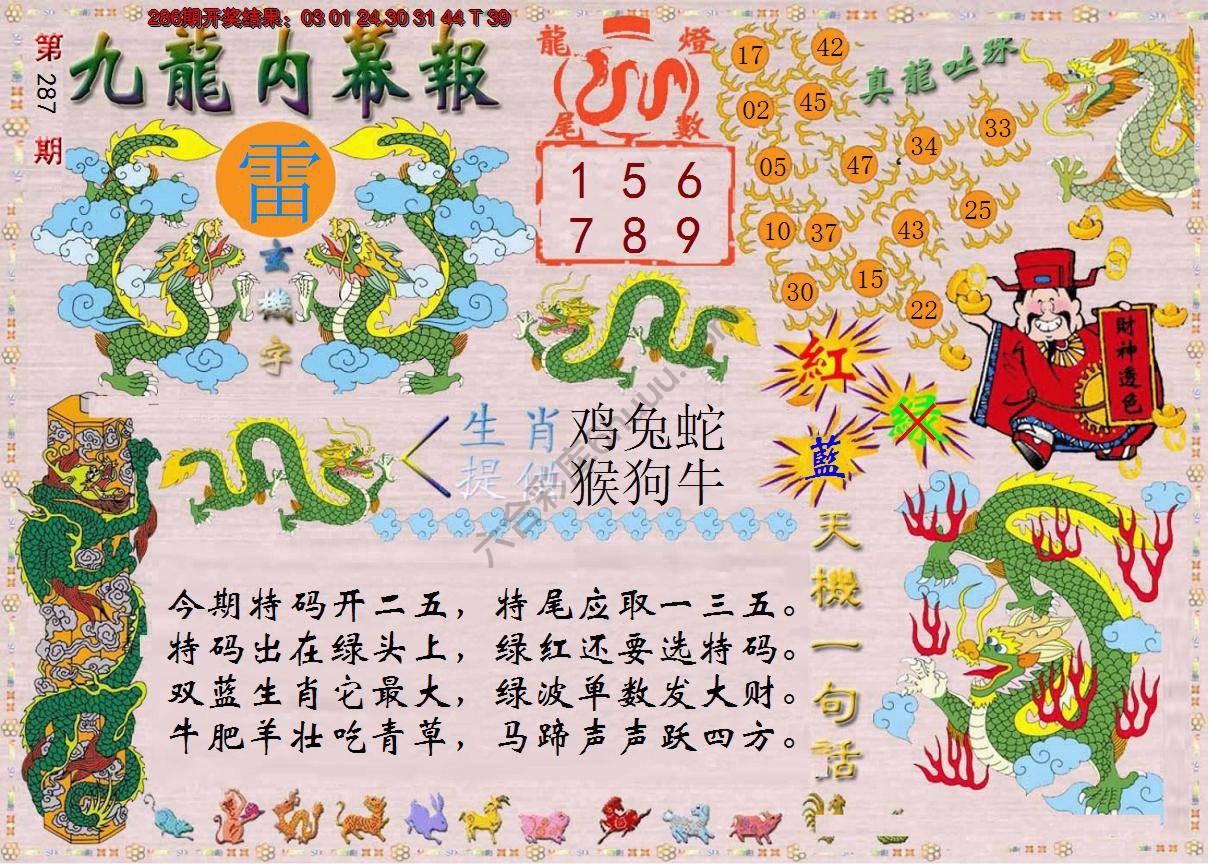 286期开奖结果：03 01 24 30 31 44 T 39
第287期
九龍内幕報
雷
玄機字
龍燈
尾數
1 5 6
7 8 9
真龍吐珠
17 42
02 45
05 47 34 33
10 37 43 25
30 15 22
財神透色
紅
绿
藍
生肖 鸡兔蛇
提供 猴狗牛
天機一句話
今期特码开二五，特尾应取一三五。
特码出在绿头上，绿红还要选特码。
双蓝生肖它最大，绿波单数发大财。
牛肥羊壮吃青草，马蹄声声跃四方。